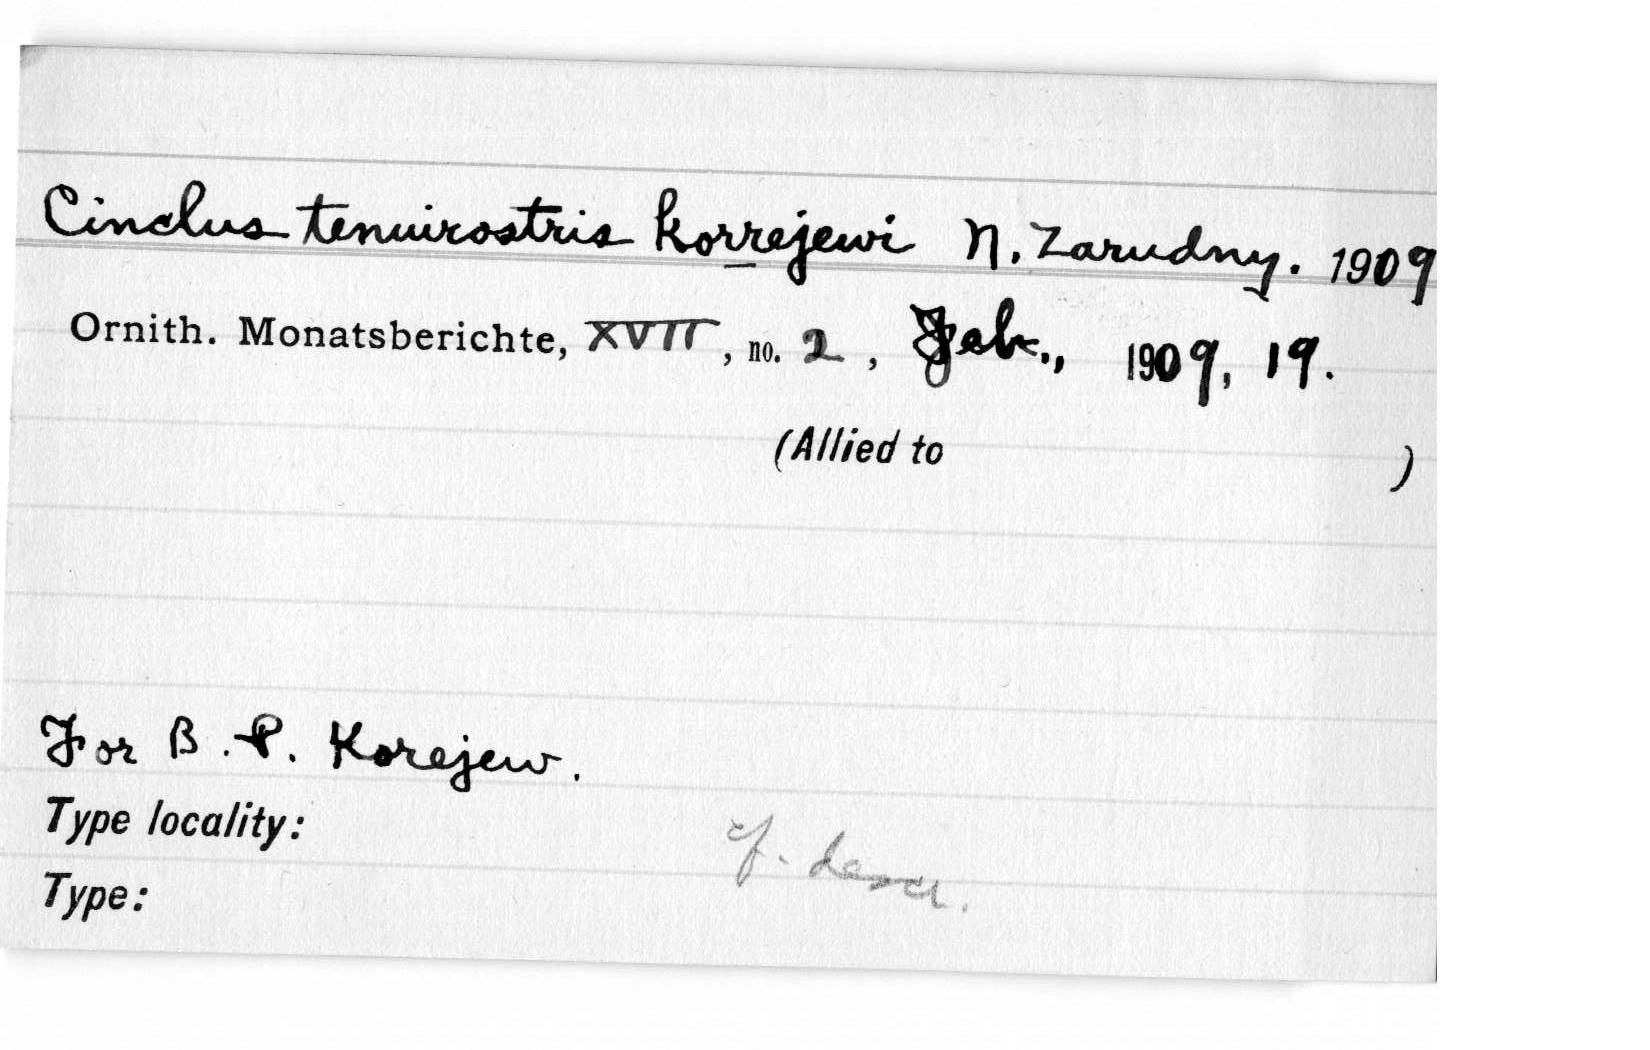 Cinclus tenuirostris korrejewi N. Zarudny. 1909
Ornith. Monatsberichte, XVII, no. 2, Feb., 1909, 19.
(Allied to )
For B. P. Korejew.
Type locality:
cf. descr.
Type: